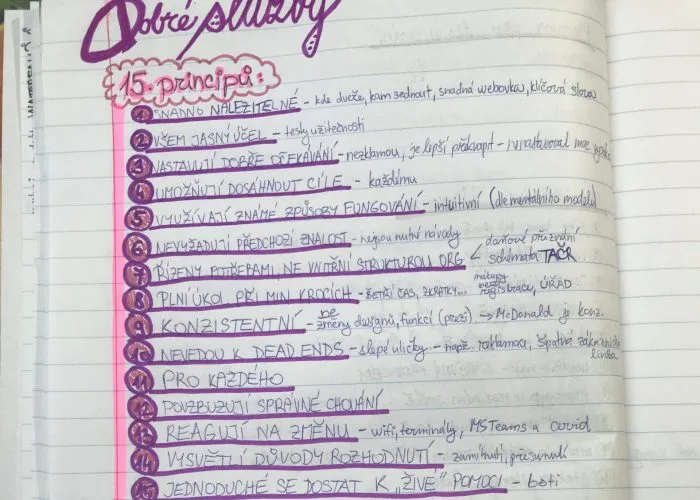 Dobré služby
15. principů:
1 SNADNO NALEZITELNÉ - kde dveře, kam sednout, snadná webovka, klíčová slova
2 VŠEM JASNÝ ÚČEL - testy užitečnosti
3 NASTAVUJÍ DOBŘE OČEKÁVÁNÍ - nezklamou, je lepší překvapit -
4 UMOŽŇUJÍ DOSÁHNOUT CÍLE - každému
5 VYUŽÍVAJÍ ZNÁMÉ ZPŮSOBY FUNGOVÁNÍ - intuitivní (dle mentálního modelu)
6 NEVYŽADUJÍ PŘEDCHOZÍ ZNALOST - nejsou nutné návody
7 ŘÍZENY POTŘEBAMI, NE VNITŘNÍ STRUKTUROU ORG < daňové přiznání
schémata TAČR
8 PLNÍ ÚKOL PŘI MIN KROCÍCH - šetří čas, zkratky... nákupy bez registrace, ÚŘAD
9 KONZISTENTNÍ - ne změny designů, funkcí (prezi) → McDonald je konz.
10 NEVEDOU K DEAD ENDS - slepé uličky - např. reklamaci, špatná zákaznická linka
11 PRO KAŽDÉHO
12 POVZBUZUJÍ SPRÁVNÉ CHOVÁNÍ
13 REAGUJÍ NA ZMĚNU - wifi, terminály, MSTeams a covid
14 VYSVĚTLÍ DŮVODY ROZHODNUTÍ - zamítnutí, přesunutí
15 JEDNODUCHÉ SE DOSTAT K „ŽIVÉ" POMOCI - boti